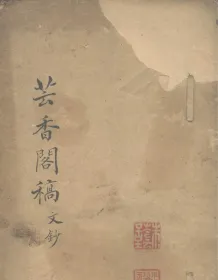 芸香閣稿文鈔